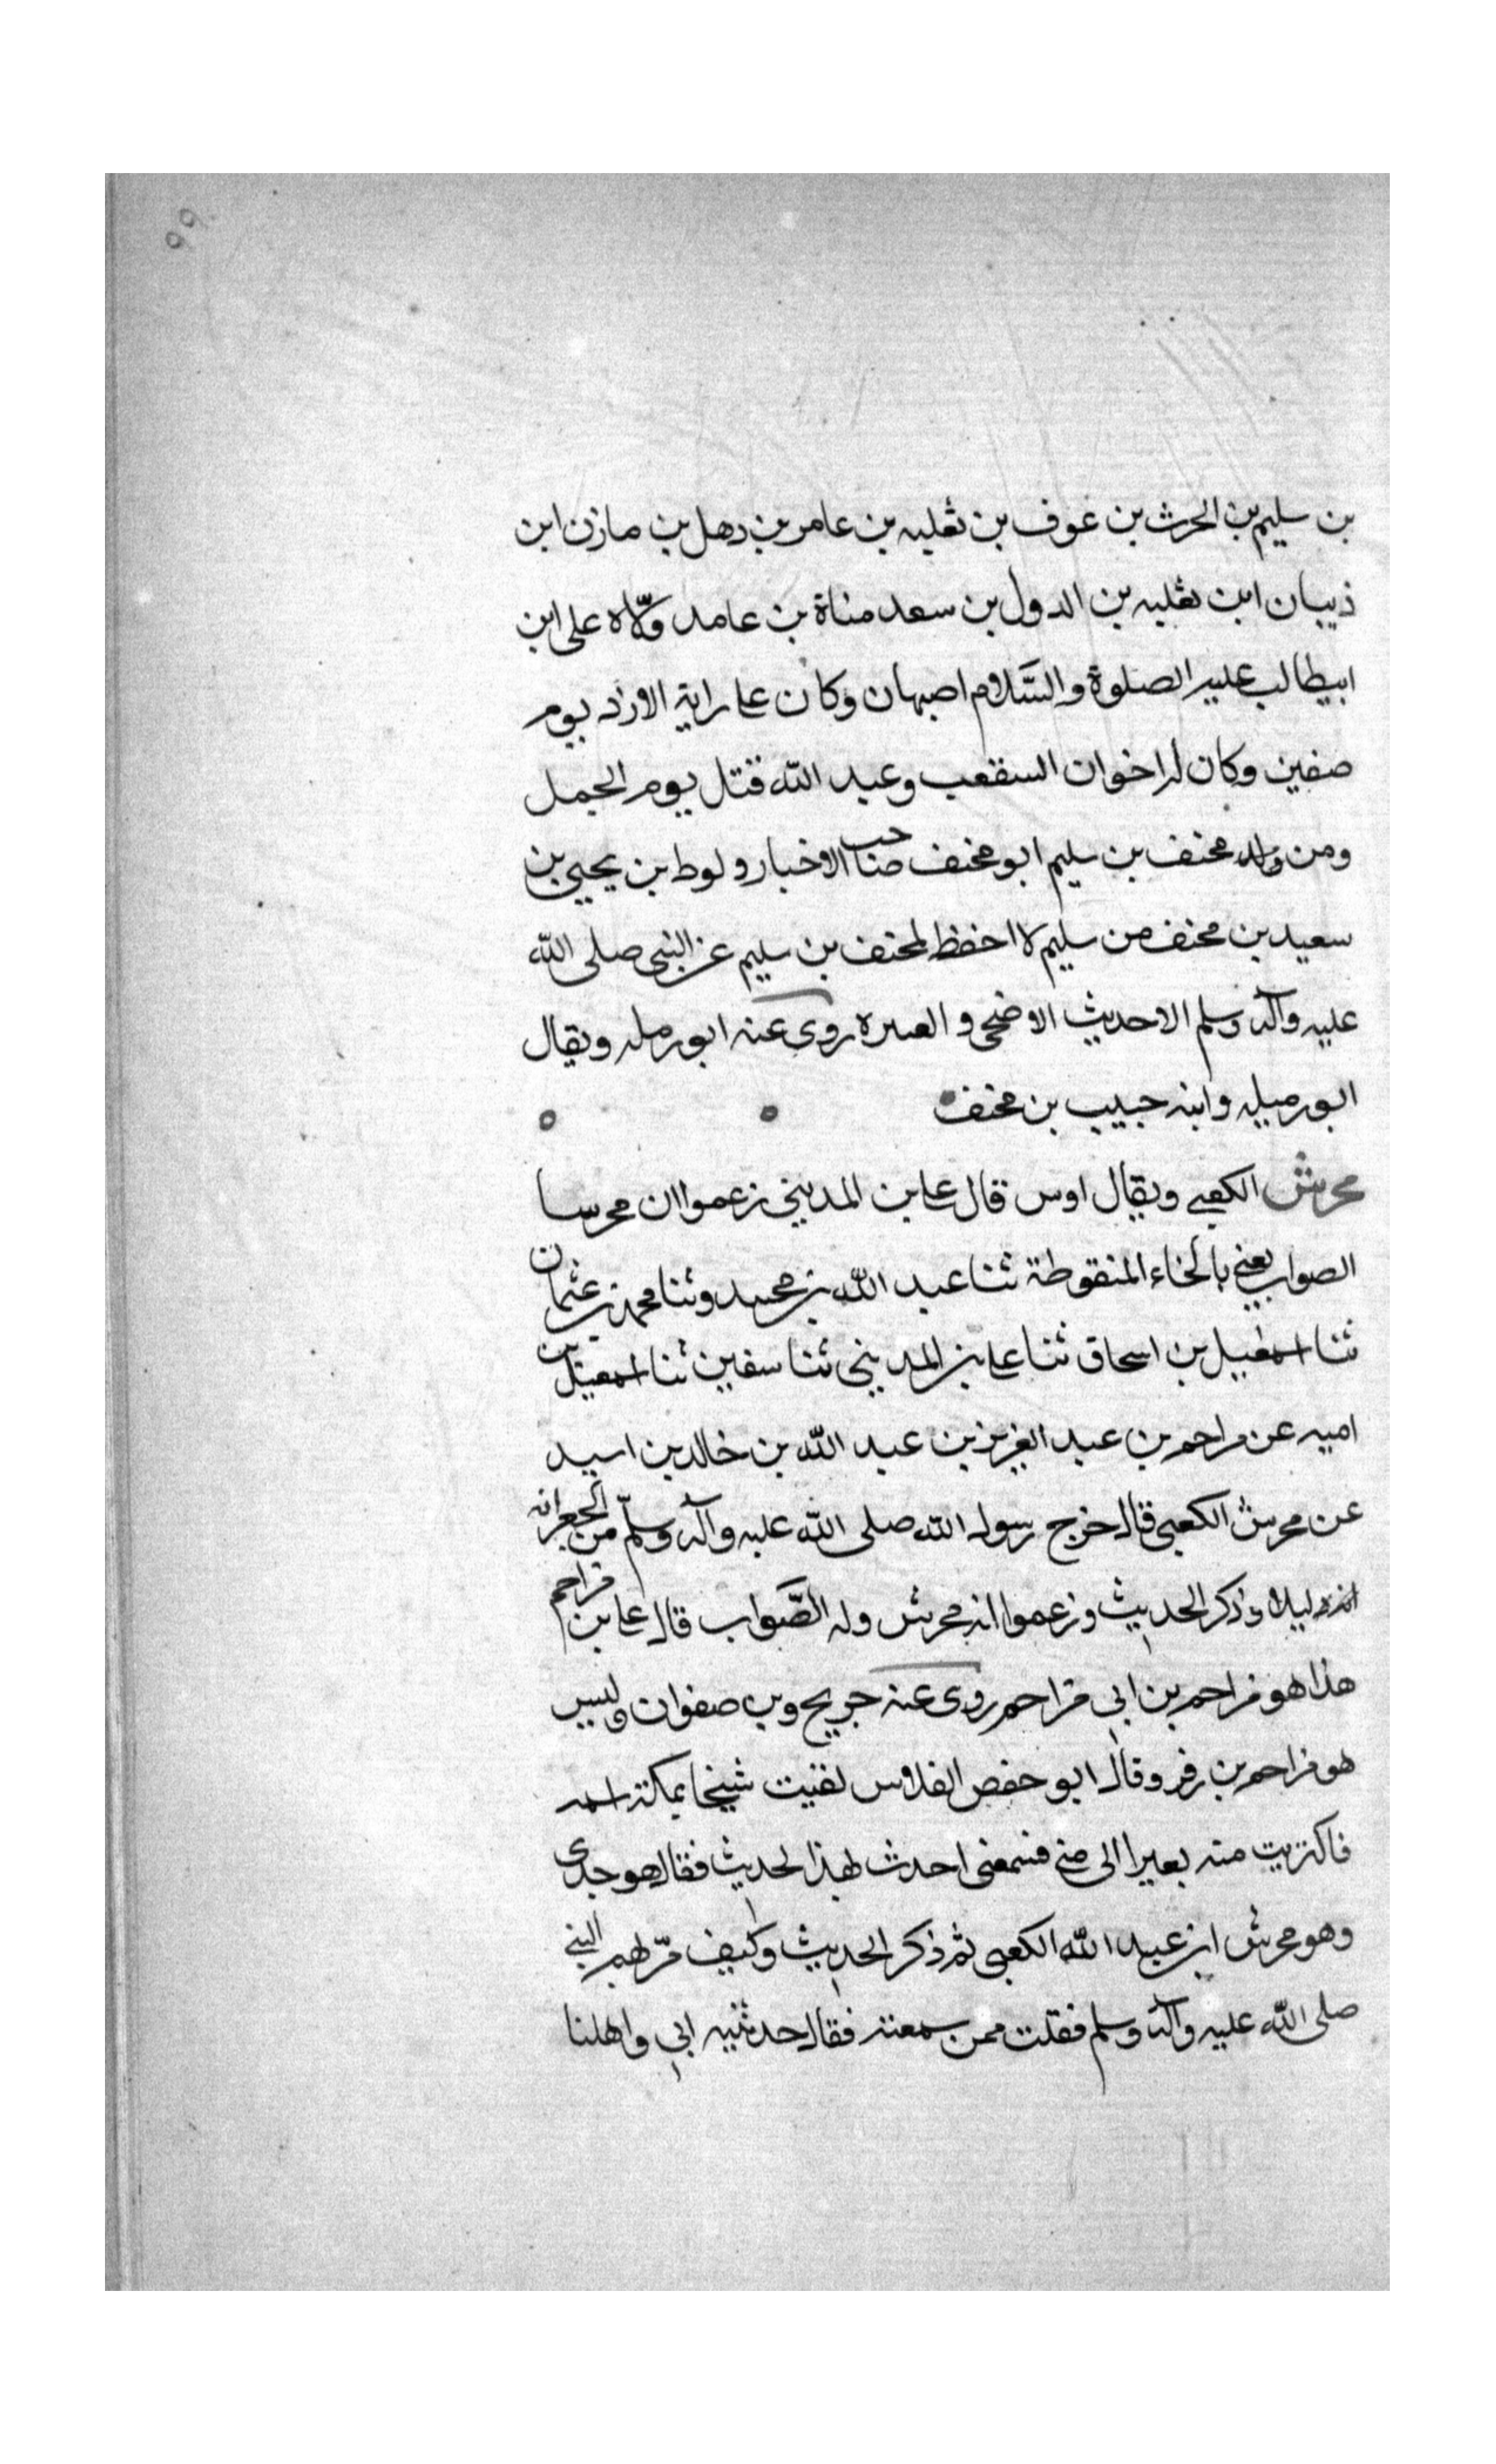 ٩٩
بن سليم بن الحرث بن عوف بن ثعلبه بن عامر بن دهل بن مازن ابن
ذيبان ابن ثعلبه بن الدول بن سعد مناة بن عامد ولّاه على ابن
ابيطالب عليه الصلوة والسّلام اصبهان وكان على راية الازد يوم
صفين وكان له اخوان السقعب وعبد الله قتل يوم الجمل
ومن ولد مخنف بن سليم ابو مخنف صاحب الاخبار ولوط بن يحيى بن
سعيد بن مخنف من سليم لا احفظ لمخنف بن سليم عن النبى صلى الله
عليه وآله وسلم الاحديث الاضحى و العسره روى عنه ابو رمله ويقال
ابو رميله وابنه حبيب بن مخنف
محرش الكعبى ويقال اوس قال على بن المدينى زعموا ان محرسا
الصواب يعنى بالخاء المنقوطة ثنا عبد الله بن محمد وثنا محمد بن عثمان
ثنا اسمعيل بن اسحاق ثنا على بن المدينى ثنا سفين ثنا اسمعيل بن
اميه عن مراحم بن عبد العزيز بن عبد الله بن خالد بن اسيد
عن محرش الكعبى قال خرج رسول الله صلى الله عليه وآله وسلّم من الجعرانه
ليلا وذكر الحديث وزعموا انه محرش وله الصّواب قال على بن مزاحم
هذا هو مزاحم بن ابى مزاحم روى عنه جريح وبن صفوان وليس
هو مزاحم بن رفر وقال ابو حفص الفلاس لقيت شيخا بمكة اسمه
فاكتريت منه بعيرا الى منى فسمعنى احدث بهذا لحديث فقال هو جدى
وهو محرش ابن عبد الله الكعبى ثم ذكر الحديث وكيف مرّ بهم النبى
صلى الله عليه وآله وسلم فقلت ممن سمعته فقال حدثنيه ابى واهلنا